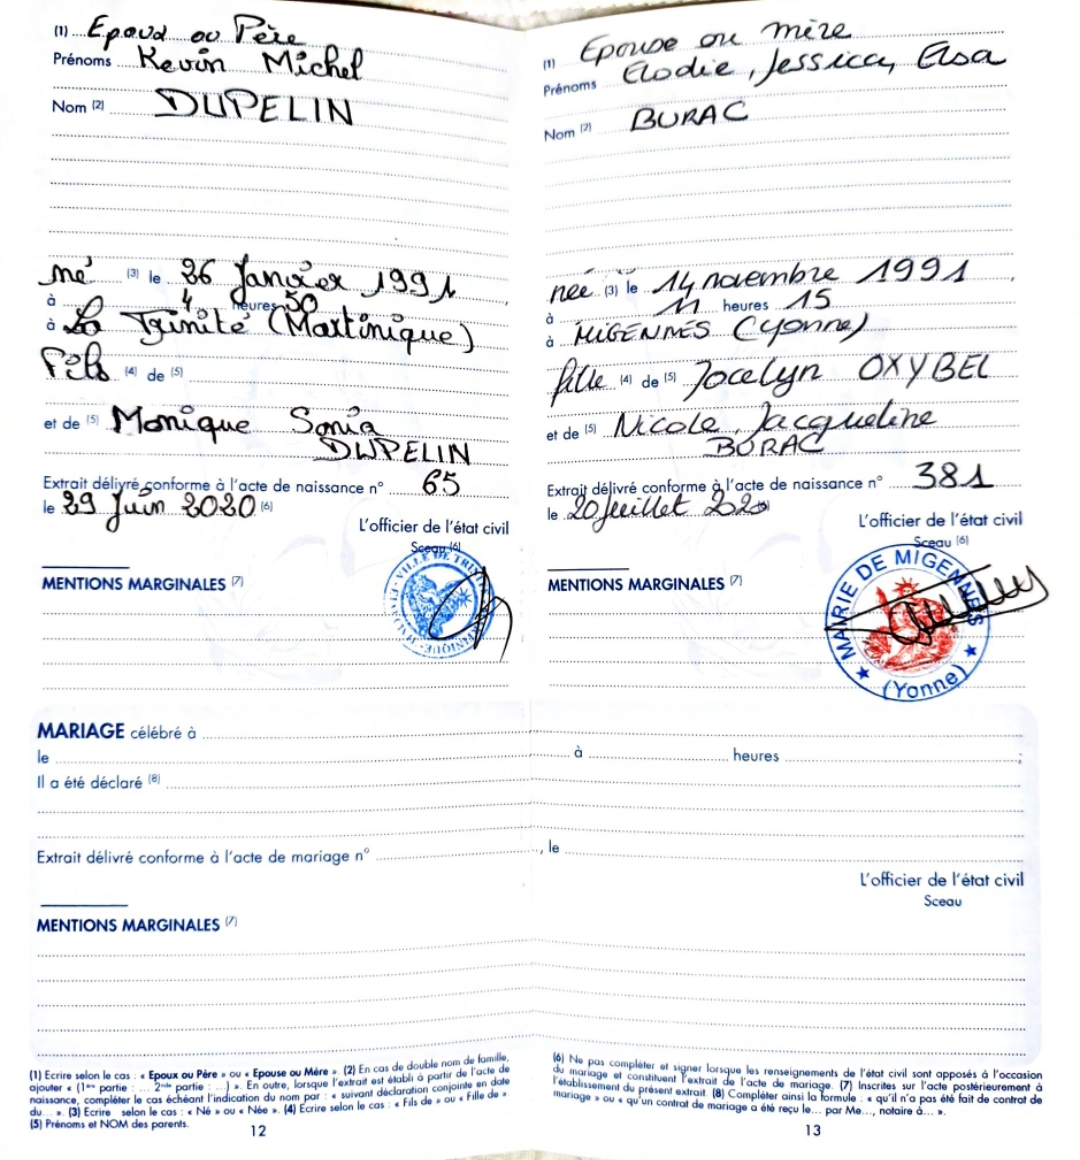 (1) Epoud ou Père
Prénoms Kevin Michel
Nom (2) DUPELIN
né (3) le 26 Janvier 1991
à 4 heures 50
à La Trinité (Martinique)
Fils (4) de (5)
et de (5) Monique Sonia
DUPELIN
Extrait délivré conforme à l'acte de naissance n° 65
le 29 Juin 2020 (6)
L'officier de l'état civil
Sceau (6)
MENTIONS MARGINALES (7)
(1) Epouse ou mère
Prénoms Elodie, Jessica, Elsa
Nom (2) BURAC
née (3) le 14 novembre 1991
à 11 heures 15
à MIGENNES (Yonne)
fille (4) de (5) Jocelyn OXYBEL
et de (5) Nicole, Jacqueline
BURAC
Extrait délivré conforme à l'acte de naissance n° 381
le 20 juillet 2020
L'officier de l'état civil
Sceau (6)
MENTIONS MARGINALES (7)
MAIRIE DE MIGENNES
(Yonne)
MARIAGE célébré à
le à heures ;
Il a été déclaré (8)
Extrait délivré conforme à l'acte de mariage n° , le
L'officier de l'état civil
Sceau
MENTIONS MARGINALES (7)
(1) Ecrire selon le cas : « Epoux ou Père » ou « Epouse ou Mère ». (2) En cas de double nom de famille,
ajouter « (1ère partie : ... 2nde partie : ...) ». En outre, lorsque l'extrait est établi à partir de l'acte de
naissance, compléter le cas échéant l'indication du nom par : « suivant déclaration conjointe en date
du... ». (3) Ecrire selon le cas : « Né » ou « Née ». (4) Ecrire selon le cas : « Fils de » ou « Fille de ».
(5) Prénoms et NOM des parents.
12
(6) Ne pas compléter et signer lorsque les renseignements de l'état civil sont apposés à l'occasion
du mariage et constituent l'extrait de l'acte de mariage. (7) Inscrites sur l'acte postérieurement à
l'établissement du présent extrait. (8) Compléter ainsi la formule : « qu'il n'a pas été fait de contrat de
mariage » ou « qu'un contrat de mariage a été reçu le... par Me..., notaire à... ».
13